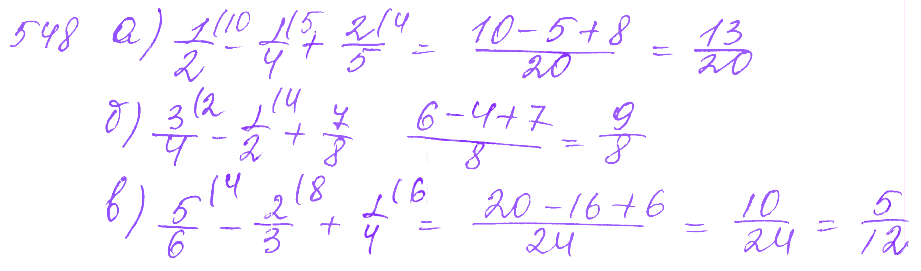 548 а) 1/2 (10 - 1/4 (5 + 2/5 (4 = (10 - 5 + 8)/20 = 13/20
б) 3/4 (2 - 1/2 (4 + 7/8 (6 - 4 + 7)/8 = 9/8
в) 5/6 (4 - 2/3 (8 + 1/4 (6 = (20 - 16 + 6)/24 = 10/24 = 5/12